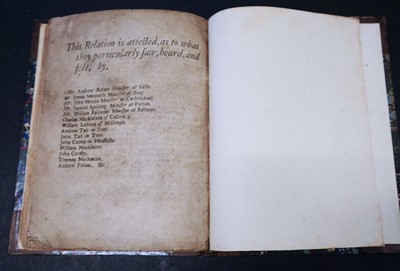 This Relation is attested, as to what
they particularly saw, heard, and
felt, by.
Mr. Andrew Ewart Minister at Kells.
Mr. James Monteith Minister at Borg
Mr. John Murdo Minister at
Mr. Samuel Spalding Minister at Parton.
Mr. William Falconer Minister at Kelton,
Charles Macklelane of
William Lennox of Millhouse.
Andrew Tait in Torr.
John Tait in Torr.
John Cairns in Hardhills.
William Macklelane.
John Corsby,
Thomas Mackminn,
Andrew Paline, &c.